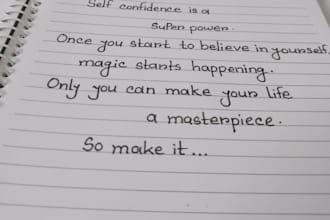 Self confidence is a
Super power.
Once you start to believe in yourself,
magic starts happening.
Only you can make your life
a masterpiece.
So make it...